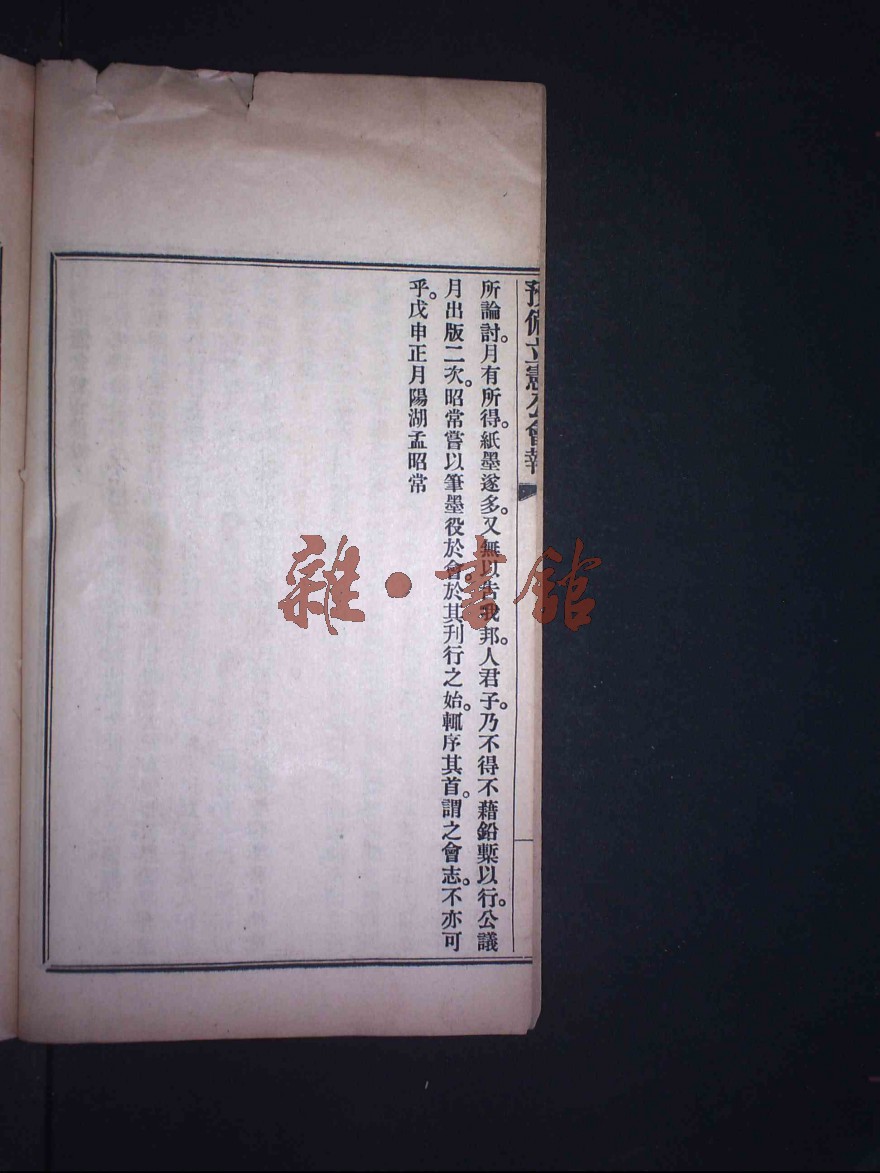 預備立憲公會報
所論討。月有所得。紙墨遂多。又無以告我邦人君子。乃不得不藉鉛槧以行。公議
月出版二次。昭常嘗以筆墨役於會。於其刊行之始。輒序其首。謂之會志。不亦可
乎。戊申正月陽湖孟昭常
雜·書館